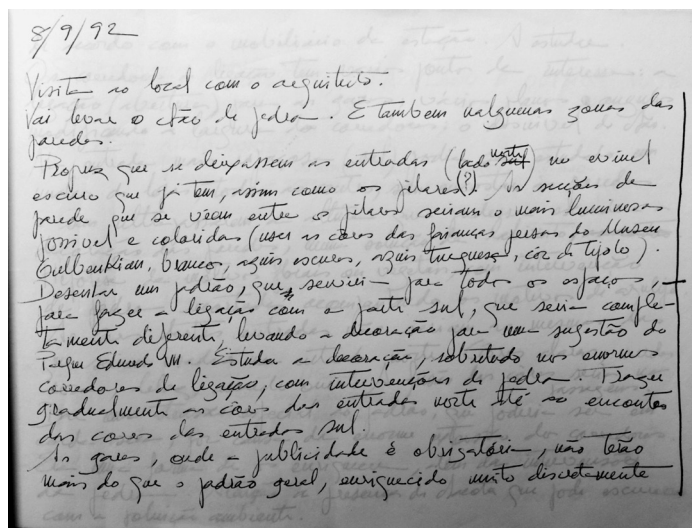 8/9/92
Visita ao local com o arquitecto.
Vai levar o chão de pedra. E também nalgumas zonas das
paredes.
Propuz que se deixassem as entradas (lado norte sul) no
escuro que já tem, assim como os pilares (?). As secções de
parede que se vêem entre os pilares seriam o mais luminosas
possível e coloridas (usei as cores das faianças persas do Museu
Gulbenkian, brancos, azuis escuros, azuis turquesa, côr de tijolo).
Desenhar um padrão, que serviria para todos os espaços,
para fazer a ligação com a parte sul, que seria comple-
tamente diferente, levando a decoração para uma sugestão do
Parque Eduardo VII. Estudar a decoração, sobretudo nos enormes
corredores de ligação, com intervenções de pedra. Trazer
gradualmente as côres das entradas norte até ao encontro
das cores das entradas sul.
As gares, onde a publicidade é obrigatória, não terão
mais do que o padrão geral, enriquecido muito discretamente